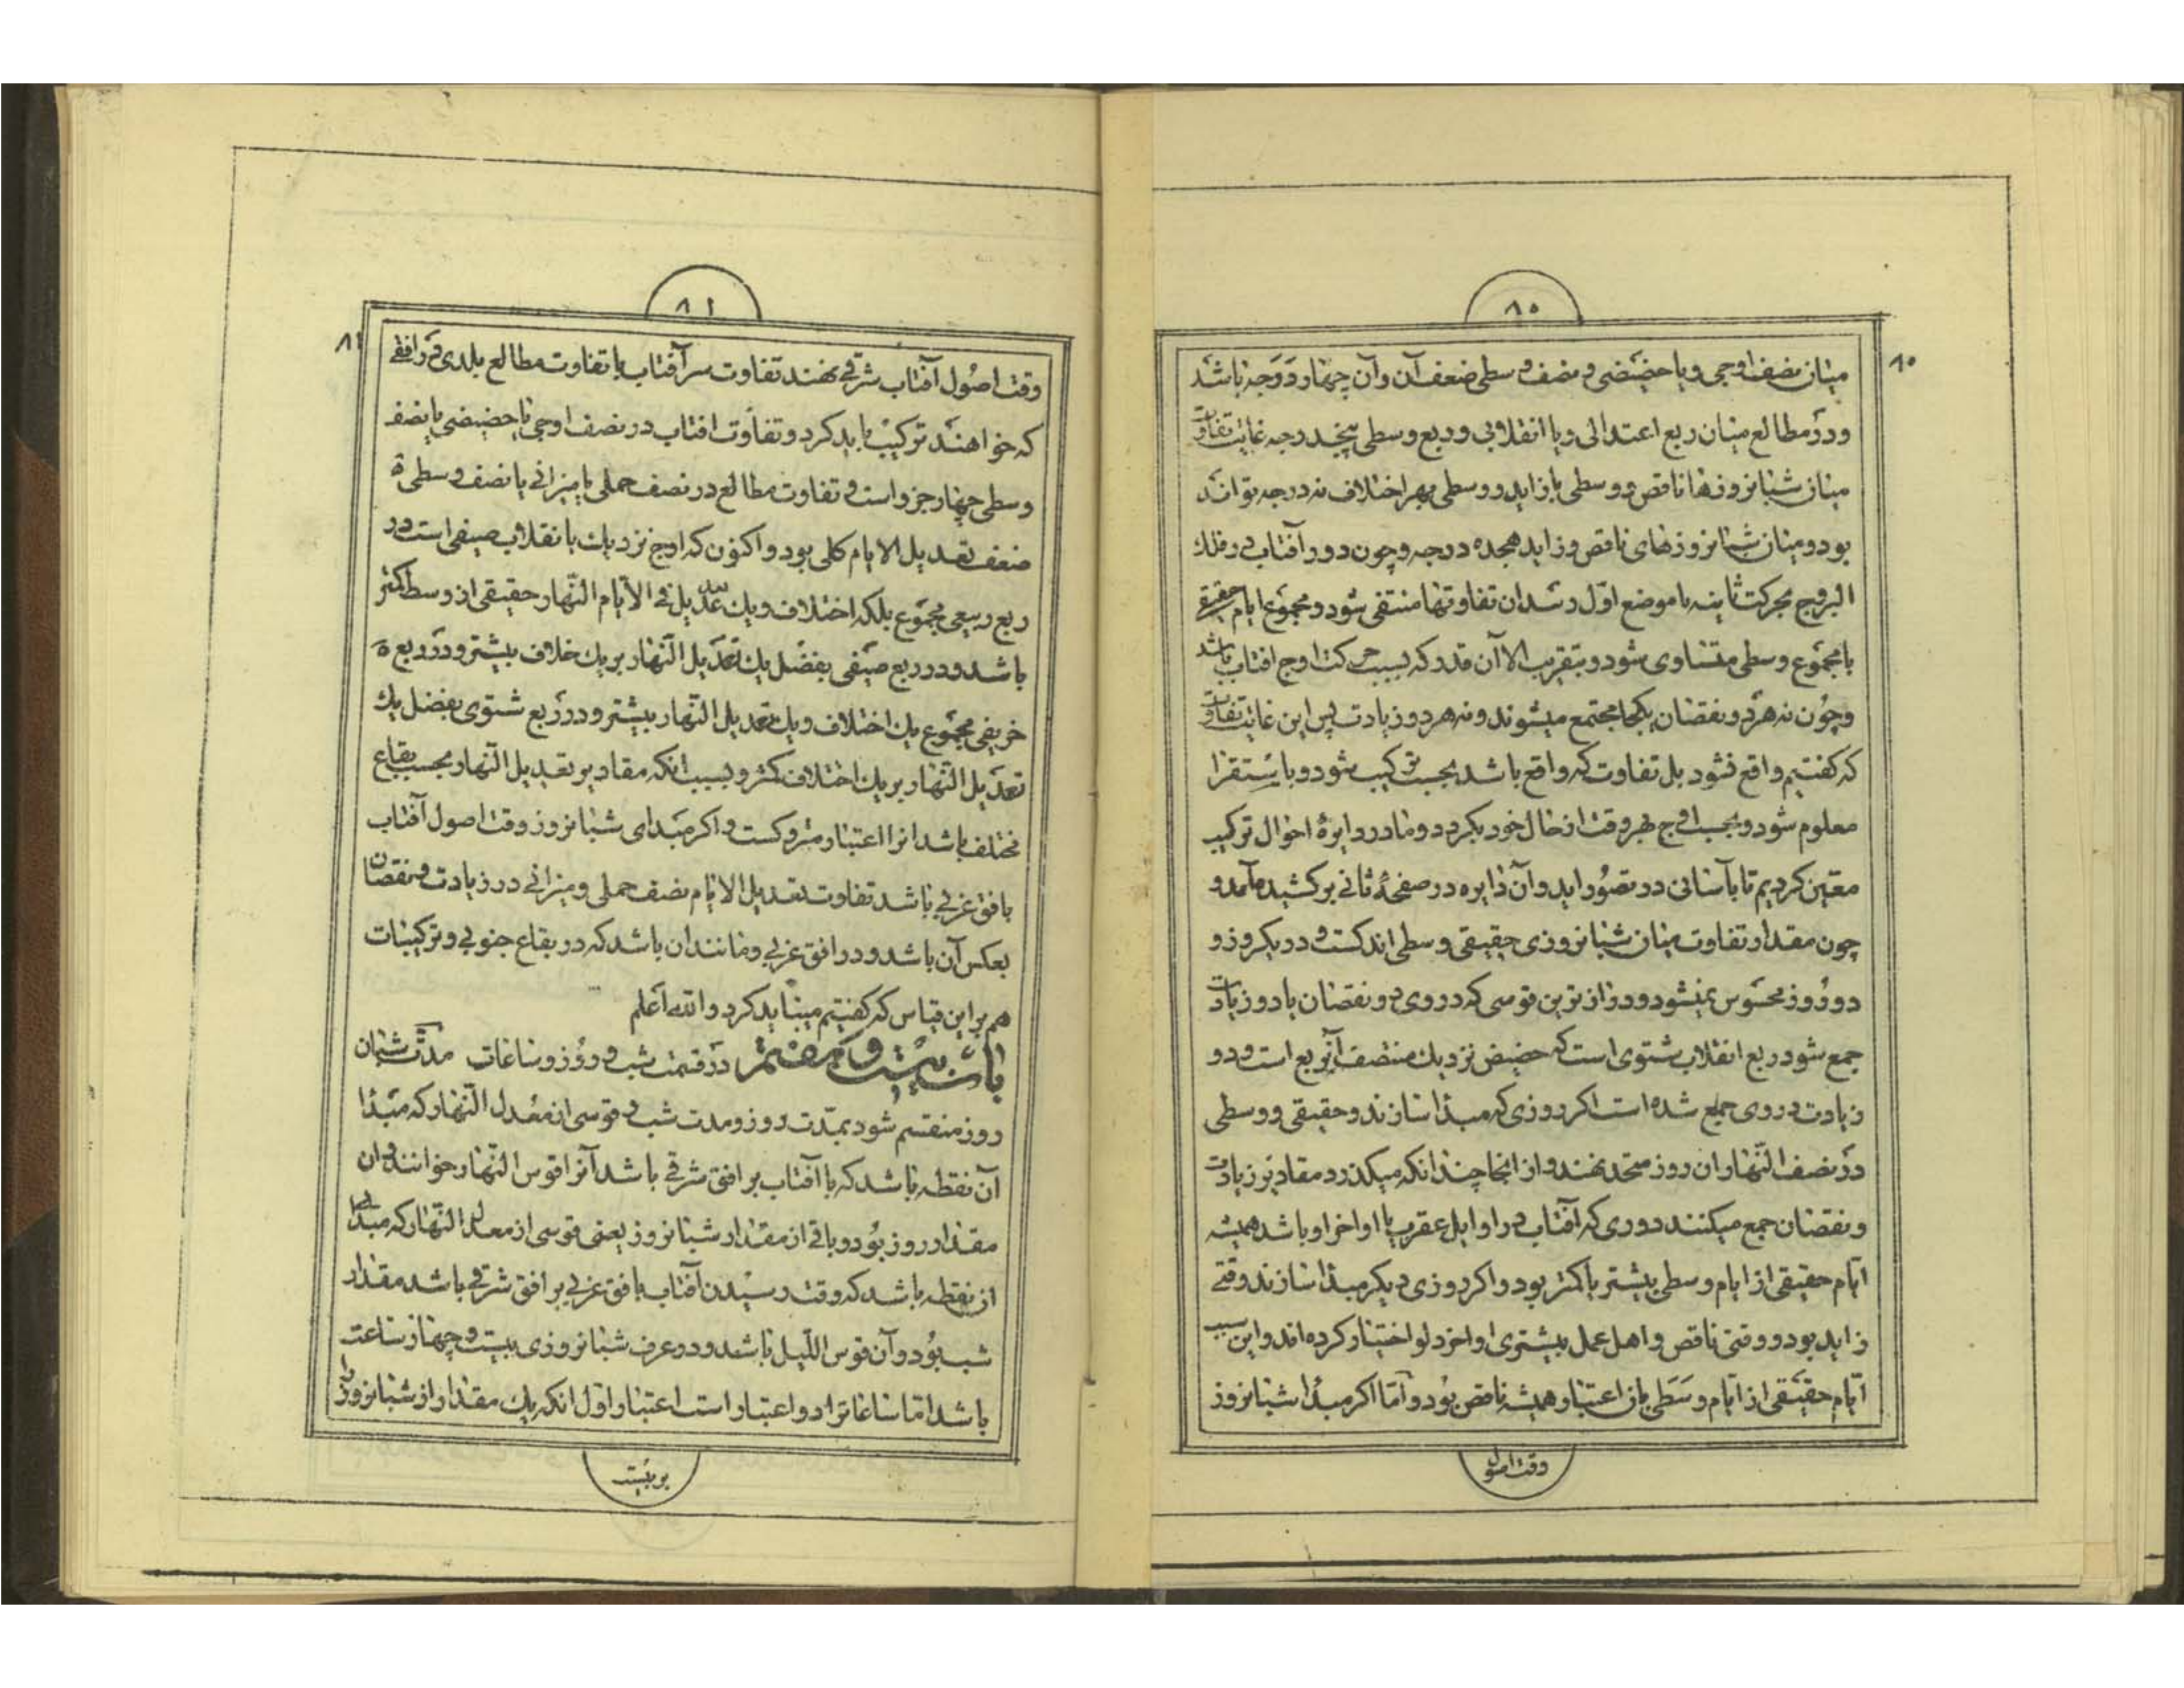 ٨٠
٨٠
میان نصف اوجی و یا حضیضی و نصف وسطی ضعف آن و آن چهار درجه باشد
و در مطالع میان ربع اعتدالی و یا انقلابی و ربع وسطی پنجدرجه غایت تفاوت
میان شبانروزها ناقص و وسطی یا زاید و وسطی بهر اختلاف نه درجه تواند
بود و میان شبانروزهای ناقص و زاید هجده درجه و چون دور آفتاب در فلك
البروج بحرکت ثانیه با موضع اوّل رسد ان تفاوتها منتفی شود و مجموع ایام حقیقی
با مجموع وسطی متساوی شود و بتقریب الا آن قدر که بسبب حرکت اوج افتاب باشد
و چون نه هر دو نقصان یکجا مجتمع میشوند و نه هر دو زیادت پس این غایت تفاوت
که کفتیم واقع نشود بل تفاوت که واقع باشد بحسب ترکیب شود و باستقرا
معلوم شود و بحسب اوج بهر وقت از حال خود بگردد و ما در دایرهٔ احوال ترکیب
معین کردیم تا بآسانی در تصوّر اید و آن دایره در صفحهٔ ثانی برکشیده آمد و
چون مقدار تفاوت میان شبانروزی حقیقی و وسطی اندکست و در یکروز و
دو روز محسوس نمیشود و درازترین قوسی که در وی دو نقصان یا دو زیادت
جمع شود ربع انقلاب شتوی است که حضیض نزدیك منتصف آنربع است و دو
زیادت در وی جمع شده است اکر روزی که مبدا سازند و حقیقی و وسطی
در نصف النّهار ان روز متحد نهند و از انجا چندانکه میکذرد مقادیر زیادت
و نقصان جمع میکنند دوری که آفتاب در اوایل عقرب یا اواخر او باشد همیشه
ایام حقیقی از ایام وسطی بیشتر یا کمتر بود و اکر روزی دیکر مبدا سازند وقتی
زاید بود و وقتی ناقص و اهل عمل بیشتری اواخر دلو اختیار کرده اند و این سبب
ایام حقیقی از ایام وسطی باز اعتبار همیشه ناقص بود و امّا اکر مبدا شبانروز
وقت اصول
٨١
٨١
وقت اصول آفتاب شرقی نهند تفاوت سر آفتاب با تفاوت مطالع بلدی در افقی
که خواهند ترکیب باید کرد و تفاوت افتاب در نصف اوجی یا حضیضی یا نصف
وسطی چهار جزو است و تفاوت مطالع در نصف حملی یا میزانی یا نصف وسطی
ضعف تعدیل الایام کلی بود و اکنون که اوج نزدیك بانقلاب صیفی است در
ربع ربیعی مجموع بلکه اختلاف و یك تعدیل فی الایام النّهار حقیقی از وسط اکثر
باشد و در ربع صیفی بفضل یك تعدیل النّهار بر یك خلاف بیشتر و در ربع
خریفی مجموع یك اختلاف و یك تعدیل النّهار بیشتر و در ربع شتوی بفضل یك
تعدیل النّهار بر یك اختلاف کمتر و بسبب انکه مقادیر تعدیل النّهار بحسب بقاع
مختلف باشد انرا اعتبار متروکست و اکر مبدای شبانروز وقت اصول آفتاب
بافق غربی باشد تفاوت تعدیل الایام نصف حملی و میزانی در زیادت و نقصان
بعکس آن باشد و در افق غربی و مانند ان باشد که در بقاع جنوبی و ترکیبات
هم بر این قیاس که کفتیم میباید کرد و الله اعلم
باب بیست و هفتم در قسمت شب و روز و ساعات مدّت شبان
روز منقسم شود بمدّت روز و مدت شب و قوسی از معدل النّهار که مبدا
آن نقطه باشد که با آفتاب بر افق شرقی باشد آنرا قوس النّهار خوانند و ان
مقدار روز بود و باقی از مقدار شبانروز یعنی قوسی از معدل النّهار که مبدا
از نقطه باشد که وقت رسیدن آفتاب بافق غربی بر افق شرقی باشد مقدار
شب بود و آن قوس اللّیل باشد و در عرف شبانروزی بیست و چهار ساعت
باشد امّا ساعات را دو اعتبار است اعتبار اوّل انکه یك مقدار از شبانروز را
بر بیست